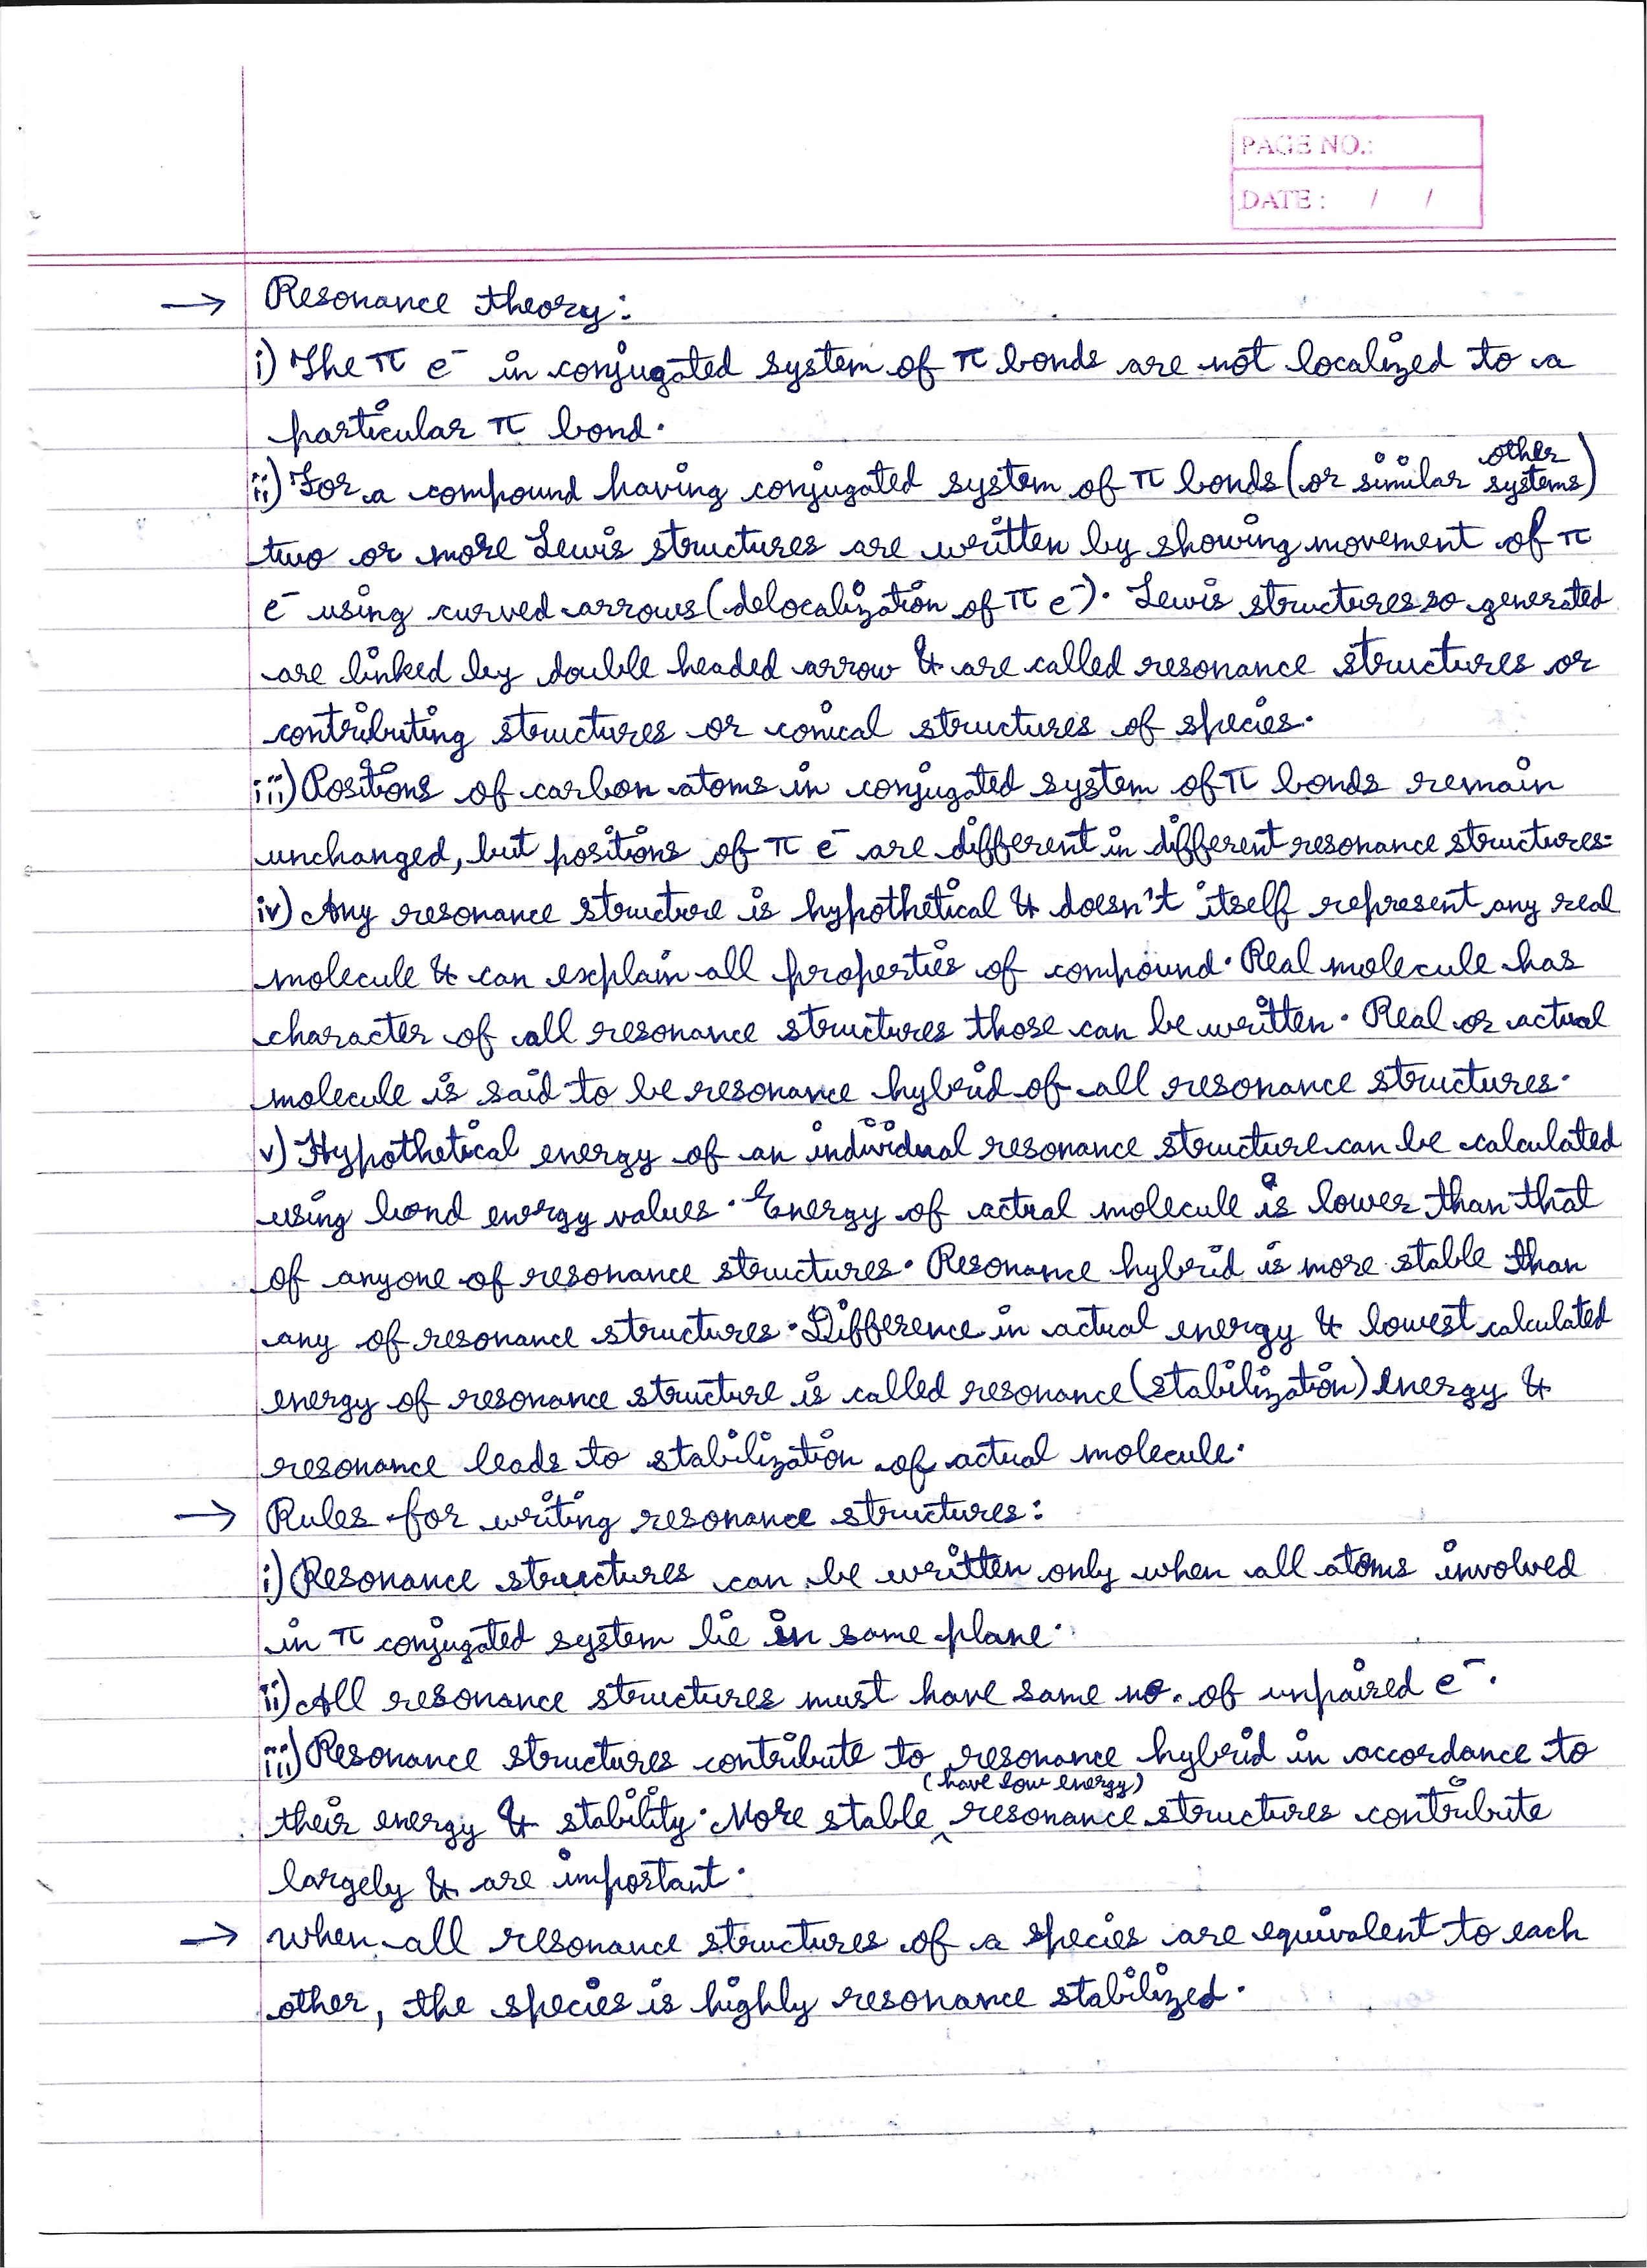 PAGE NO.:
DATE : / /
→ Resonance theory:
i) The π e⁻ in conjugated system of π bonds are not localized to a
particular π bond.
ii) For a compound having conjugated system of π bonds (or similar other systems)
two or more Lewis structures are written by showing movement of π
e⁻ using curved arrows (delocalization of π e⁻). Lewis structures so generated
are linked by double headed arrow & are called resonance structures or
contributing structures or conical structures of species.
iii) Positions of carbon atoms in conjugated system of π bonds remain
unchanged, but positions of π e⁻ are different in different resonance structures.
iv) Any resonance structure is hypothetical & doesn't itself represent any real
molecule & can explain all properties of compound. Real molecule has
character of all resonance structures those can be written. Real or actual
molecule is said to be resonance hybrid of all resonance structures.
v) Hypothetical energy of an individual resonance structure can be calculated
using bond energy values. Energy of actual molecule is lower than that
of anyone of resonance structures. Resonance hybrid is more stable than
any of resonance structures. Difference in actual energy & lowest calculated
energy of resonance structure is called resonance (stabilization) energy &
resonance leads to stabilization of actual molecule.
→ Rules for writing resonance structures:
i) Resonance structures can be written only when all atoms involved
in π conjugated system lie in same plane.
ii) All resonance structures must have same no. of unpaired e⁻.
iii) Resonance structures contribute to resonance hybrid in accordance to
their energy & stability. More stable (have low energy) resonance structures contribute
largely & are important.
→ When all resonance structures of a species are equivalent to each
other, the species is highly resonance stabilized.